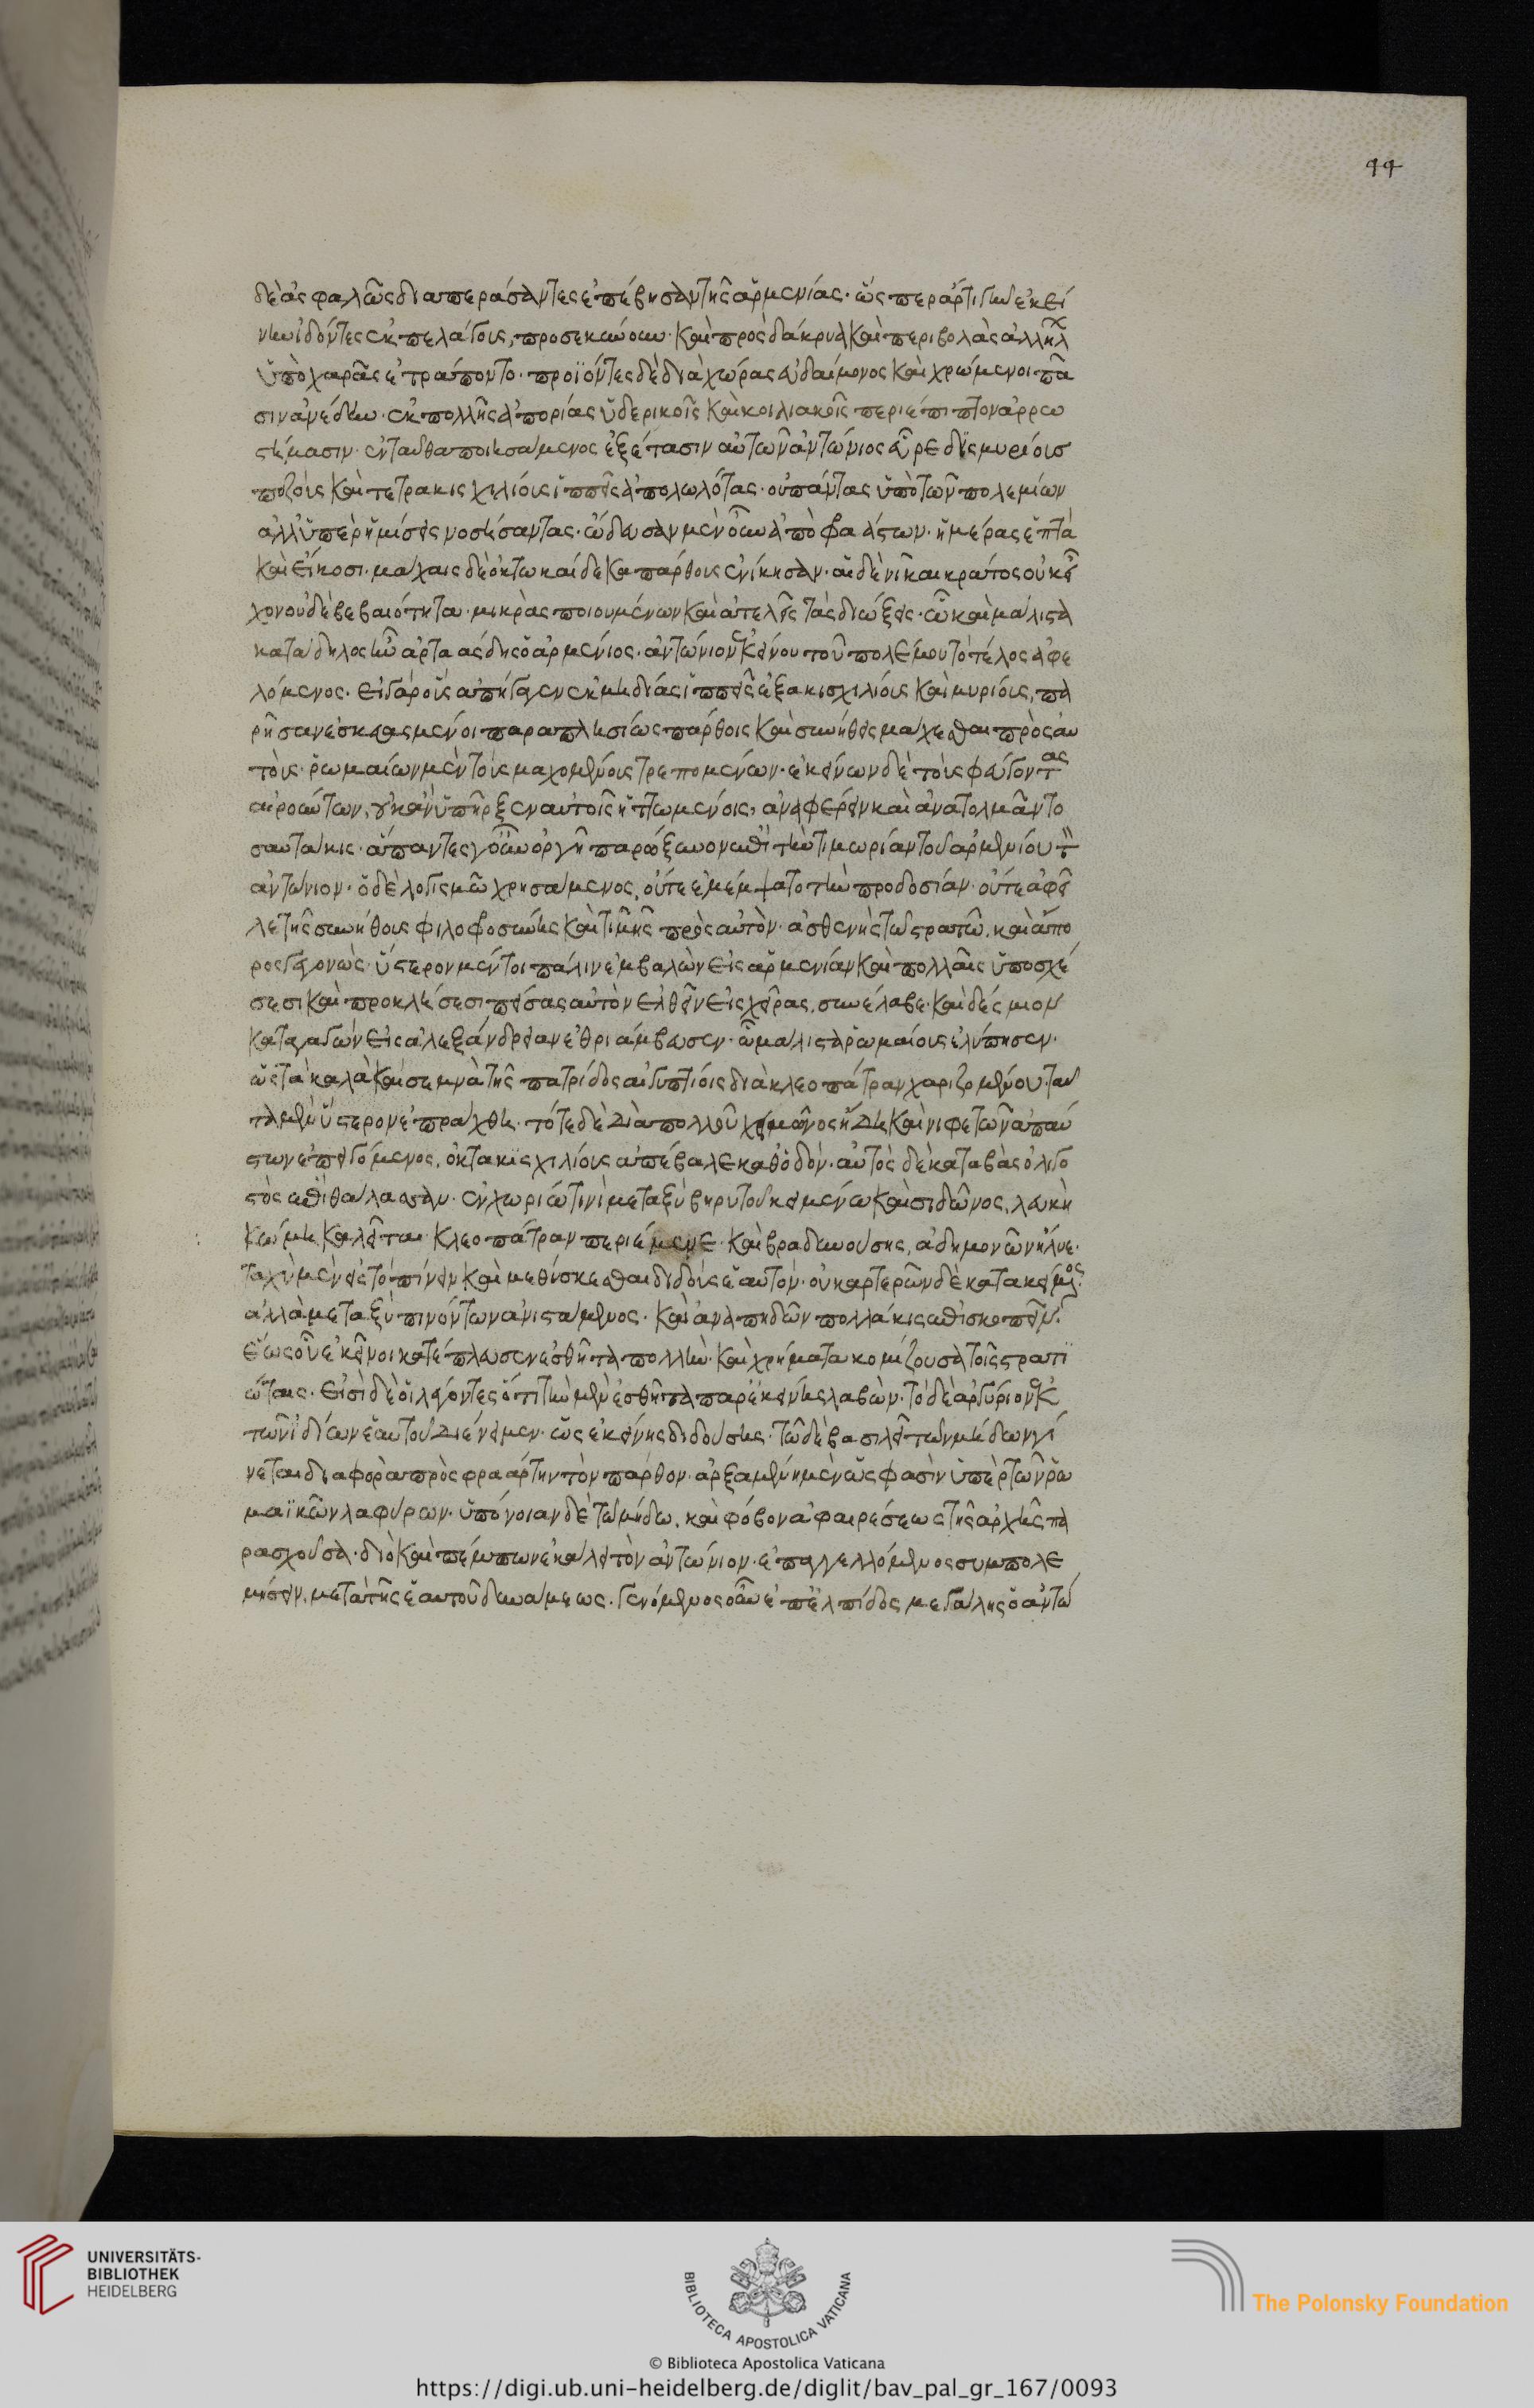 44
δὲ ἀσφαλῶς διαπεράσαντες ἐπέβησαν τῆς ἀρμενίας. ὥσπερ ἄρτι γῆν ἐκεί
νην ἰδόντες ἐκ πελάγους, προσεκύνουν. καὶ πρὸς δάκρυα καὶ περιβολὰς ἀλλήλ
ὑπὸ χαρᾶς ἐτράποντο. προϊόντες δὲ διὰ χώρας εὐδαίμονος καὶ χρώμενοι πᾶ
σιν ἀνέδην. ἐκ πολλῆς ἀπορίας ὑδερικοῖς καὶ κοιλιακοῖς περιέπιπτον ἀρρω
στήμασιν. ἐνταῦθα ποιησάμενος ἐξέτασιν αὐτῶν ἀντώνιος εὗρε δισμυρίους
πεζοὺς καὶ τετρακισχιλίους ἱππεῖς ἀπολωλότας. οὐ πάντας ὑπὸ τῶν πολεμίων
ἀλλ' ὑπὲρ ἡμίσεις νοσήσαντας. ὥδευσαν μὲν οὖν ἀπὸ φραάτων. ἡμέρας ἑπτὰ
καὶ εἴκοσι. μάχαις δὲ ὀκτωκαίδεκα πάρθους ἐνίκησαν. αἱ δὲ νῖκαι κράτος οὐκ εἶ
χον οὐδὲ βεβαιότητα. μικρὰς ποιουμένων καὶ ἀτελεῖς τὰς διώξεις. ᾧ καὶ μάλιστα
κατάδηλος ἦν ἀρταάσδης ὁ ἀρμένιος. ἀντώνιον ἐκείνου τοῦ πολέμου τὸ τέλος ἀφε
λόμενος. εἰ γὰρ οὓς ἀπήγαγεν ἐκ μηδίας ἱππεῖς ἑξακισχιλίους καὶ μυρίους, πα
ρῆσαν ἐσκευασμένοι παραπλησίως πάρθοις καὶ συνήθεις μάχεσθαι πρὸς αὐ
τοὺς. ῥωμαίων μὲν τοὺς μαχομένους τρεπομένων. ἐκείνων δὲ τοὺς φεύγοντας
αἱρούντων, οὐκ ἂν ὑπῆρξεν αὐτοῖς ἡττωμένοις, ἀναφέρειν καὶ ἀνατολμᾶν το
σαυτάκις. ἅπαντες οὖν ὀργῇ παρώξυνον ἐπὶ τὴν τιμωρίαν τοῦ ἀρμενίου τ
ἀντώνιον. ὁ δὲ λογισμῷ χρησάμενος, οὔτε ἐμέμψατο τὴν προδοσίαν. οὔτε ἀφεῖ
λε τῆς συνήθους φιλοφροσύνης καὶ τιμῆς πρὸς αὐτὸν. ἀσθενὴς τῷ στρατῷ. καὶ ἄπο
ρος γεγονὼς. ὕστερον μέντοι πάλιν ἐμβαλὼν εἰς ἀρμενίαν καὶ πολλαῖς ὑποσχέ
σεσι καὶ προκλήσεσι πείσας αὐτὸν ἐλθεῖν εἰς χεῖρας, συνέλαβε. καὶ δέσμιον
καταγαγὼν εἰς ἀλεξάνδρειαν ἐθριάμβευσεν. ᾧ μάλιστα ῥωμαίους ἐλύπησεν.
ὡς τὰ καλὰ καὶ σεμνὰ τῆς πατρίδος αἰγυπτίοις διὰ κλεοπάτραν χαριζομένου. ταῦ
τα μὲν ὕστερον ἐπράχθη. τότε δὲ διὰ πολλοῦ χειμῶνος ἤδη καὶ νιφετῶν ἀπαύ
στων ἐπειγόμενος, ὀκτακισχιλίους ἀπέβαλε καθ' ὁδόν. αὐτὸς δὲ καταβὰς ὀλιγο
στὸς ἐπὶ θάλασσαν. ἐν χωρίῳ τινὶ μεταξὺ βηρυτοῦ κειμένῳ καὶ σιδῶνος, λευκὴ
κώμη καλεῖται. κλεοπάτραν περιέμενε. καὶ βραδυνούσης, ἀδημονῶν ἤλυε.
ταχὺ μὲν εἰς τὸ πίνειν καὶ μεθύσκεσθαι διδοὺς ἑαυτόν. οὐ καρτερῶν δὲ κατακείμενος.
ἀλλὰ μεταξὺ πινόντων ἀνιστάμενος. καὶ ἀναπηδῶν πολλάκις ἐπισκοπεῖν.
ἕως οὗ ἐκείνοι κατέπλευσεν ἐσθῆτα πολλὴν. καὶ χρήματα κομίζουσα τοῖς στρατι
ώταις. εἰσὶ δὲ οἱ λέγοντες ὅτι τὴν μὲν ἐσθῆτα παρ' ἐκείνης λαβὼν. τὸ δὲ ἀργύριον ἐκ
τῶν ἰδίων ἑαυτοῦ διένειμεν. ὡς ἐκείνης διδούσης. τῷ δὲ βασιλεῖ τῶν μήδων γί
νεται διαφορὰ πρὸς φραάρτην τὸν πάρθον. ἀρξαμένη μὲν ὥς φασὶν ὑπὲρ τῶν ῥω
μαϊκῶν λαφύρων. ὑπόνοιαν δὲ τῷ μήδῳ. καὶ φόβον ἀφαιρέσεως τῆς ἀρχῆς πα
ρασχοῦσα. διὸ καὶ πέμπων ἐκάλει τὸν ἀντώνιον. ἐπαγγελλόμενος συμπολε
μήσειν. μετὰ τῆς ἑαυτοῦ δυνάμεως. γενόμενος οὖν ἐπ' ἐλπίδος μεγάλης ὁ ἀντώ
UNIVERSITÄTS-
BIBLIOTHEK
HEIDELBERG
BIBLIOTECA APOSTOLICA VATICANA
The Polonsky Foundation
© Biblioteca Apostolica Vaticana
https://digi.ub.uni-heidelberg.de/diglit/bav_pal_gr_167/0093